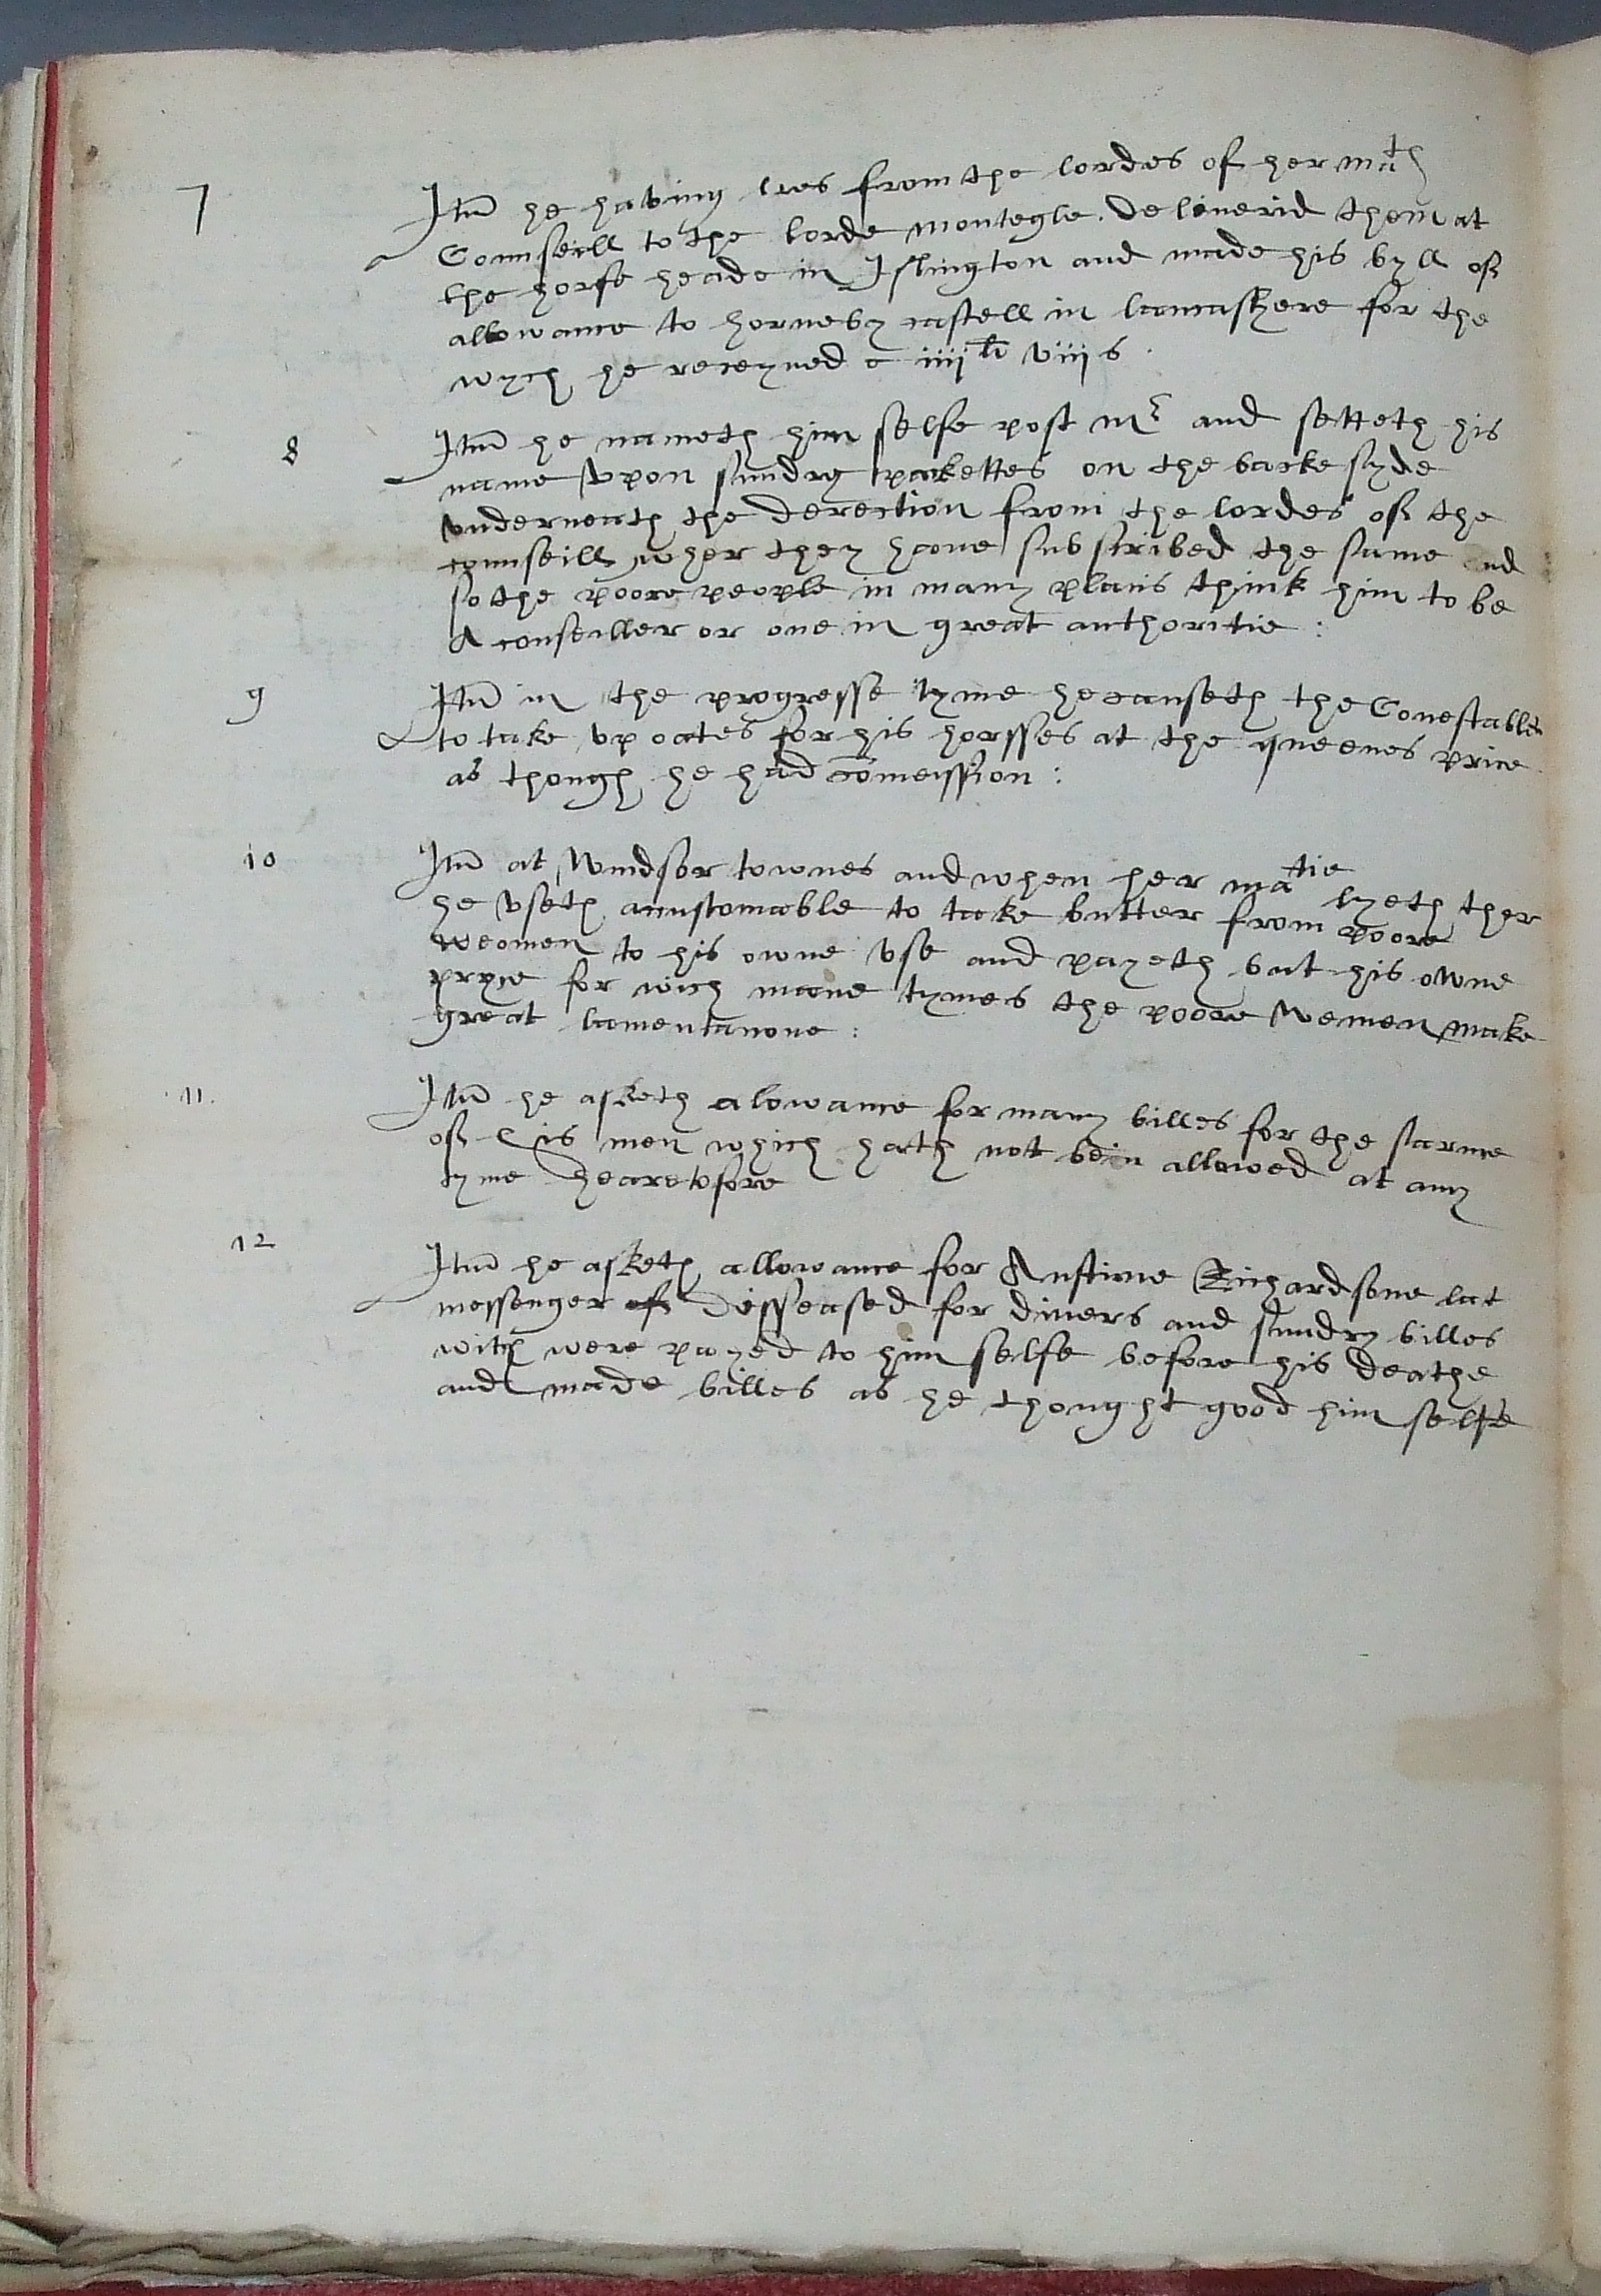 7
Itm̃ he having lres from the lordes of her matis
Counseill to the lorde montegle. delinerid them at
the horse heade in Islington and made his byll of
allowance to horneby castell in lancashere for the
wych he receyued iiij li viij s.
8
Itm̃ he nameth him selfe post mr and setteth his
name vpon sundry packettes on the backe syde
vnderneath the derection from the lordes of the
counseill wher they haue subscribed the same and
so the poore people in many placis think him to be
A conseiller or one in great authoritie :
9
Itm̃ in the progresse tyme he causeth the Conestables
to take vp oates for his horsses at the queenes price
as though he had com̃eission :
10
Itm̃ at Windsor townes and when her matie lyeth ther
he vseth accustomable to take butter from poore
weomen to his owne vse and payeth but his owne
pryce for wich manie tymes the poore wemen make
great lamentacione :
11.
Itm̃ he asketh alowance for many billes for the same
of his men which hath not bein allowed at any
tyme hearetofore
12
Itm̃ he asketh allowance for Austine Richardsone lat
messenger of disseased for diuers and sundry billes
wich were payed to him selfe before his deathe
and made billes as he thought good him selfe